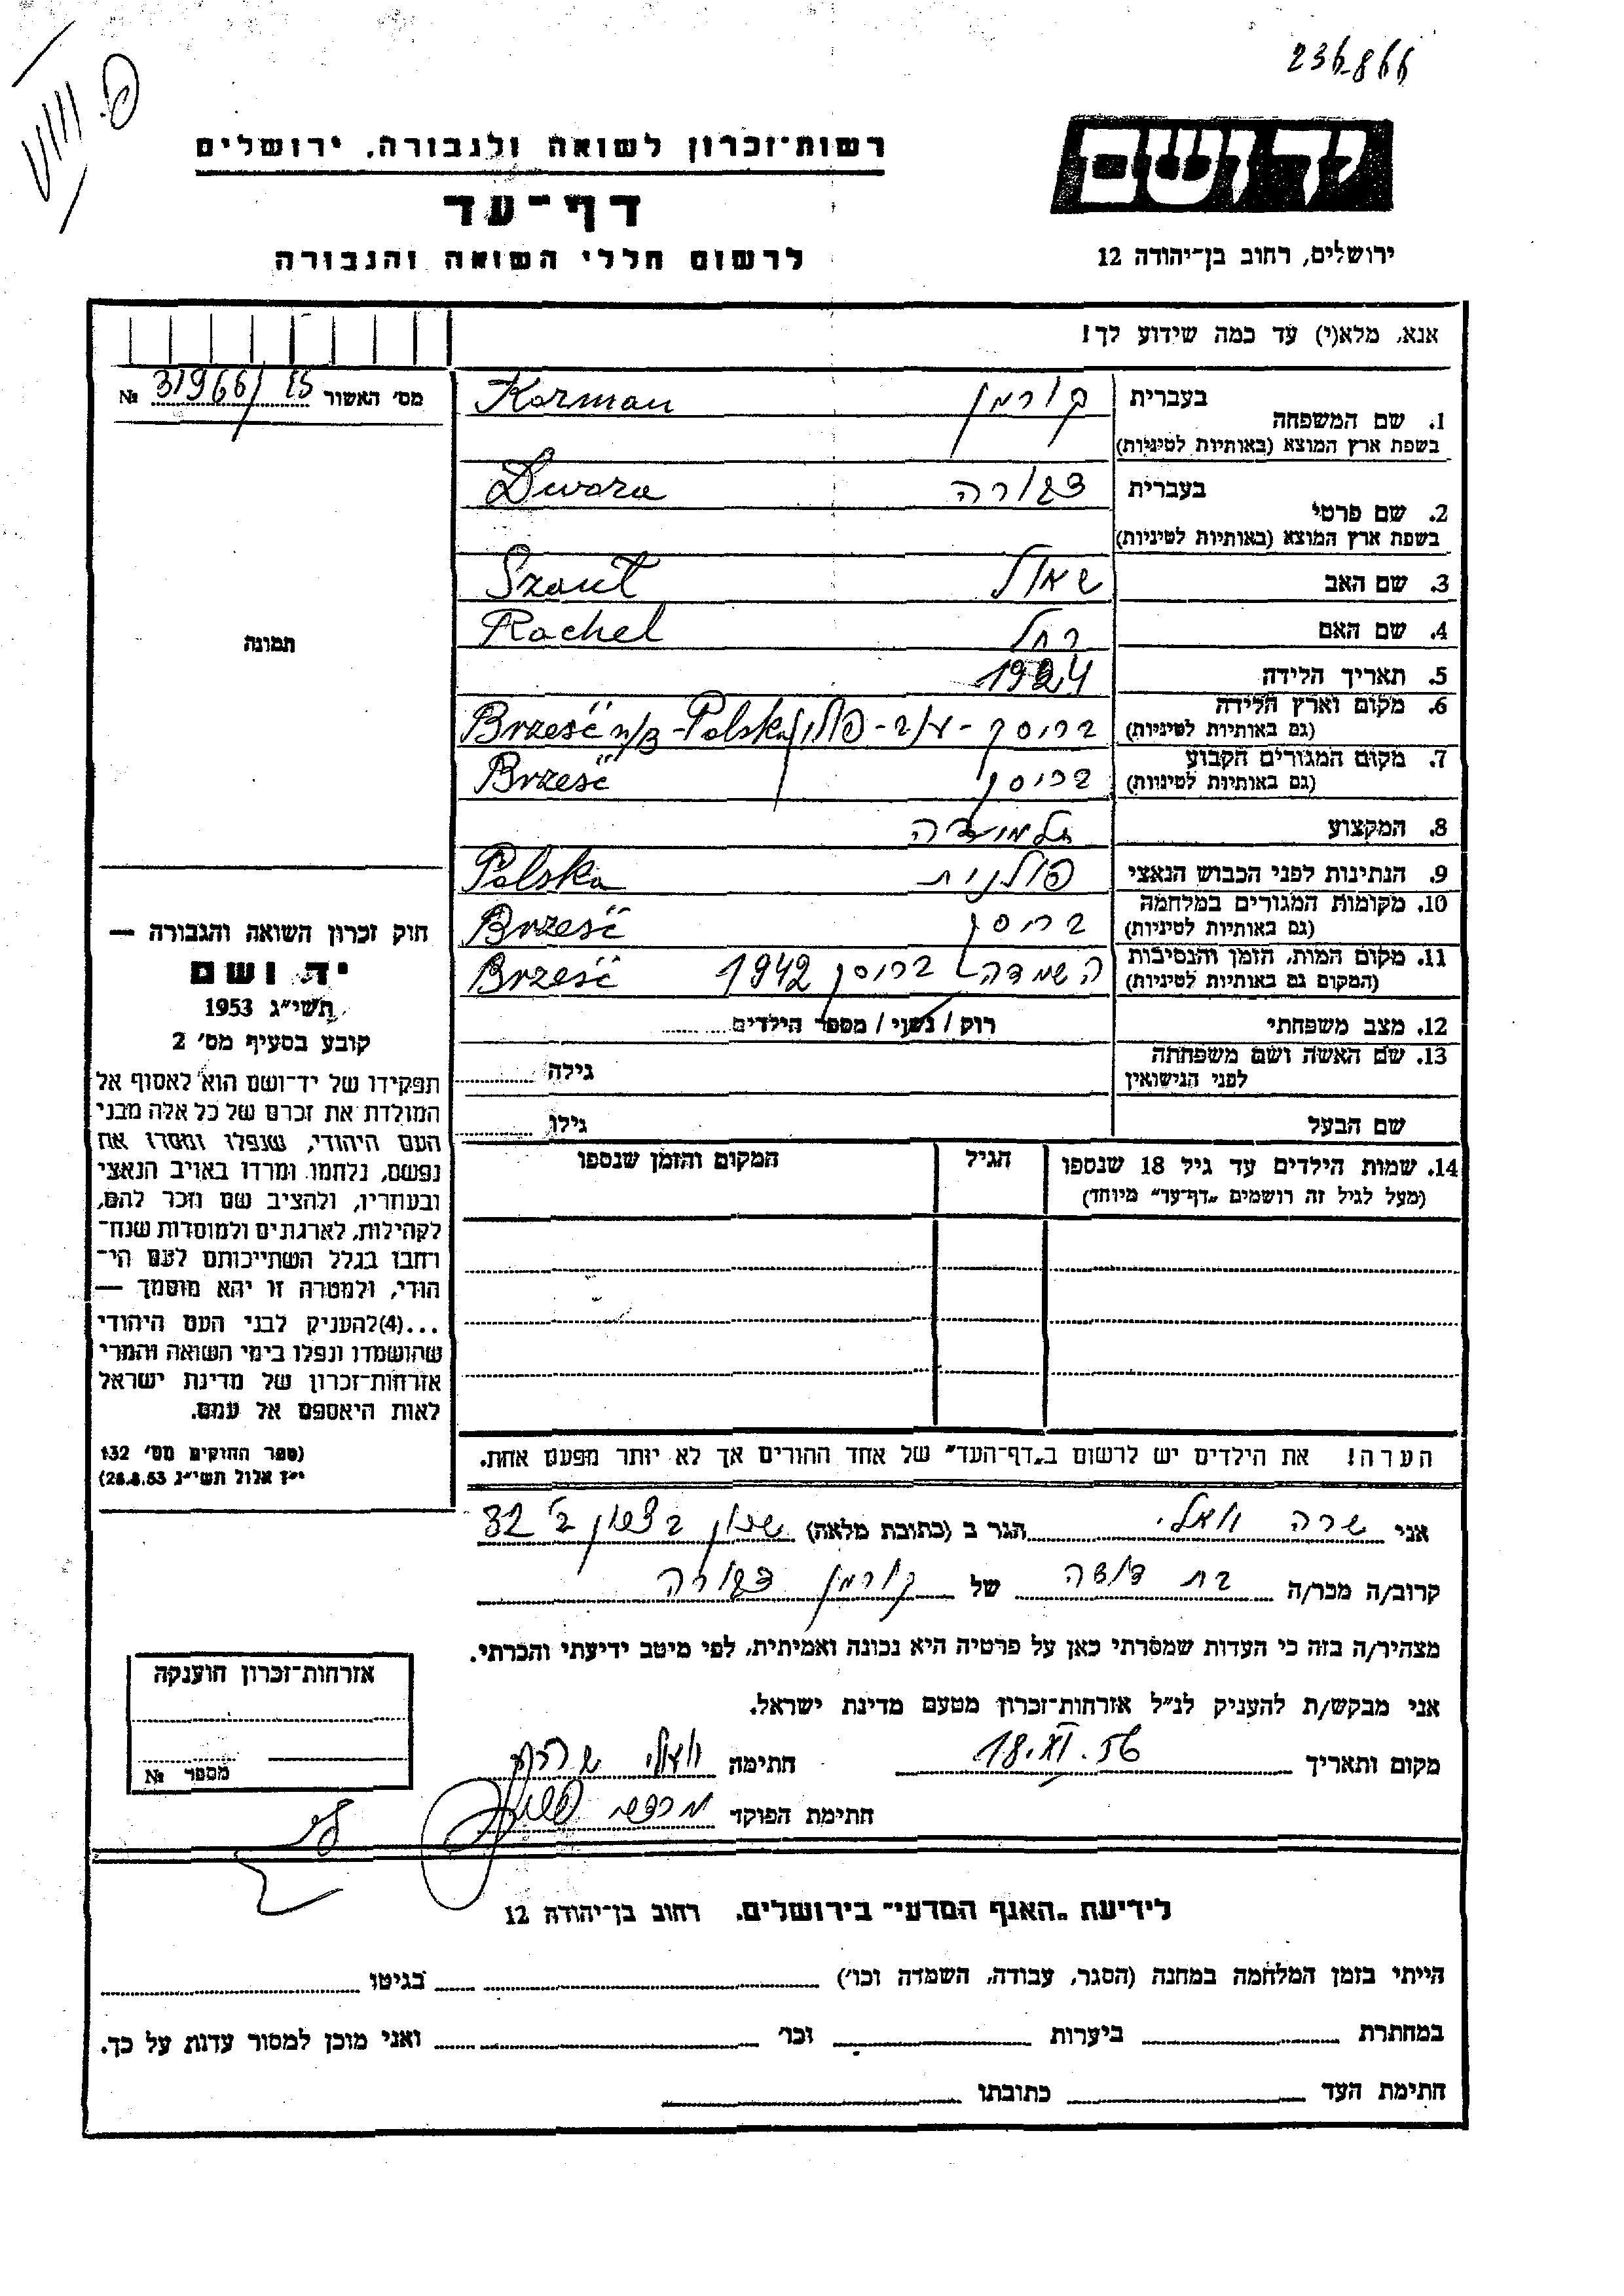 236866
ק. ווש
יד ושם
רשות־זכרון לשואה ולגבורה, ירושלים
דף־עד
לרשום חללי השואה והגבורה
ירושלים, רחוב בן־יהודה 12
אנא, מלא(י) עד כמה שידוע לך!
מס׳ האשור 31966/ № 
1. שם המשפחה בעברית קורמן Korman
בשפת ארץ המוצא (באותיות לטיניות)
2. שם פרטי בעברית דבורה Dwora
בשפת ארץ המוצא (באותיות לטיניות)
3. שם האב שאול Szaul
4. שם האם רחל Rachel
5. תאריך הלידה 1924
6. מקום וארץ הלידה בריסק - ע/ב - פולין Brześć n/B - Polska
(גם באותיות לטיניות)
7. מקום המגורים הקבוע בריסק Brześć
(גם באותיות לטיניות)
8. המקצוע תלמידה
9. הנתינות לפני הכבוש הנאצי פולנית Polska
10. מקומות המגורים במלחמה בריסק Brześć
(גם באותיות לטיניות)
11. מקום המות, הזמן והנסיבות השמדה בריסק 1942 Brześć
(המקום גם באותיות לטיניות)
12. מצב משפחתי רוק / נשוי / מספר הילדים
13. שם האשה ושם משפחתה לפני הנישואין גילה
שם הבעל גילו
14. שמות הילדים עד גיל 18 שנספו הגיל המקום והזמן שנספו
(מעל לגיל זה רושמים „דף־עד״ מיוחד)
הערה! את הילדים יש לרשום ב„דף־העד״ של אחד ההורים אך לא יותר מפעם אחת.
תמונה
חוק זכרון השואה והגבורה —
יד ושם
תשי״ג 1953
קובע בסעיף מס׳ 2
תפקידו של יד־ושם הוא לאסוף אל
המולדת את זכרם של כל אלה מבני
העם היהודי, שנפלו ומסרו את
נפשם, נלחמו ומרדו באויב הנאצי
ובעוזריו, ולהציב שם וזכר להם,
לקהילות, לארגונים ולמוסדות שנח־
רבו בגלל השתייכותם לעם הי־
הודי, ולמטרה זו יהא מוסמך —
...(4)להעניק לבני העם היהודי
שהושמדו ונפלו בימי השואה והמרי
אזרחות־זכרון של מדינת ישראל
לאות היאספם אל עמם.
(ספר החוקים מס׳ 132
י״ז אלול תשי״ג 28.8.53)
אני שרה וואלי הגר ב (כתובת מלאה) שכון ב׳ 32
קרוב/ה מכר/ה בת דודה של קורמן דבורה
מצהיר/ה בזה כי העדות שמסרתי כאן על פרטיה היא נכונה ואמיתית, לפי מיטב ידיעתי והכרתי.
אני מבקש/ת להעניק לנ״ל אזרחות־זכרון מטעם מדינת ישראל.
מקום ותאריך 18.XI.56 חתימה וואלי שרה
חתימת הפוקד מרדכי
אזרחות־זכרון הוענקה
מספר №
לידיעת „האגף המדעי״ בירושלים, רחוב בן־יהודה 12
הייתי בזמן המלחמה במחנה (הסגר, עבודה, השמדה וכו׳) בגיטו
במחתרת ביערות וכו׳ ואני מוכן למסור עדות על כך.
חתימת העד כתובתו